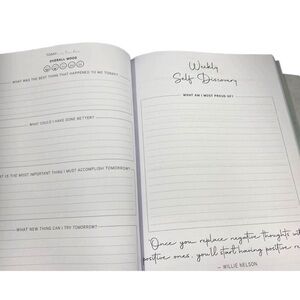 TODAY
OVERALL MOOD
WHAT WAS THE BEST THING THAT HAPPENED TO ME TODAY?
WHAT COULD I HAVE DONE BETTER?
T IS THE MOST IMPORTANT THING I MUST ACCOMPLISH TOMORROW?
WHAT NEW THING CAN I TRY TOMORROW?
Weekly
Self Discovery
WHAT AM I MOST PROUD OF?
Once you replace negative thoughts wi
positive ones, you'll start having positive r
— WILLIE NELSON